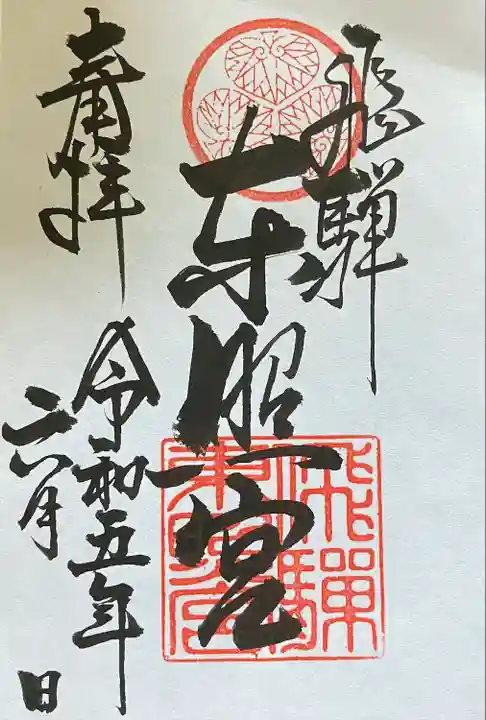 飛騨
東照宮
飛騨
東照宮
奉拝
令和五年
六月
日